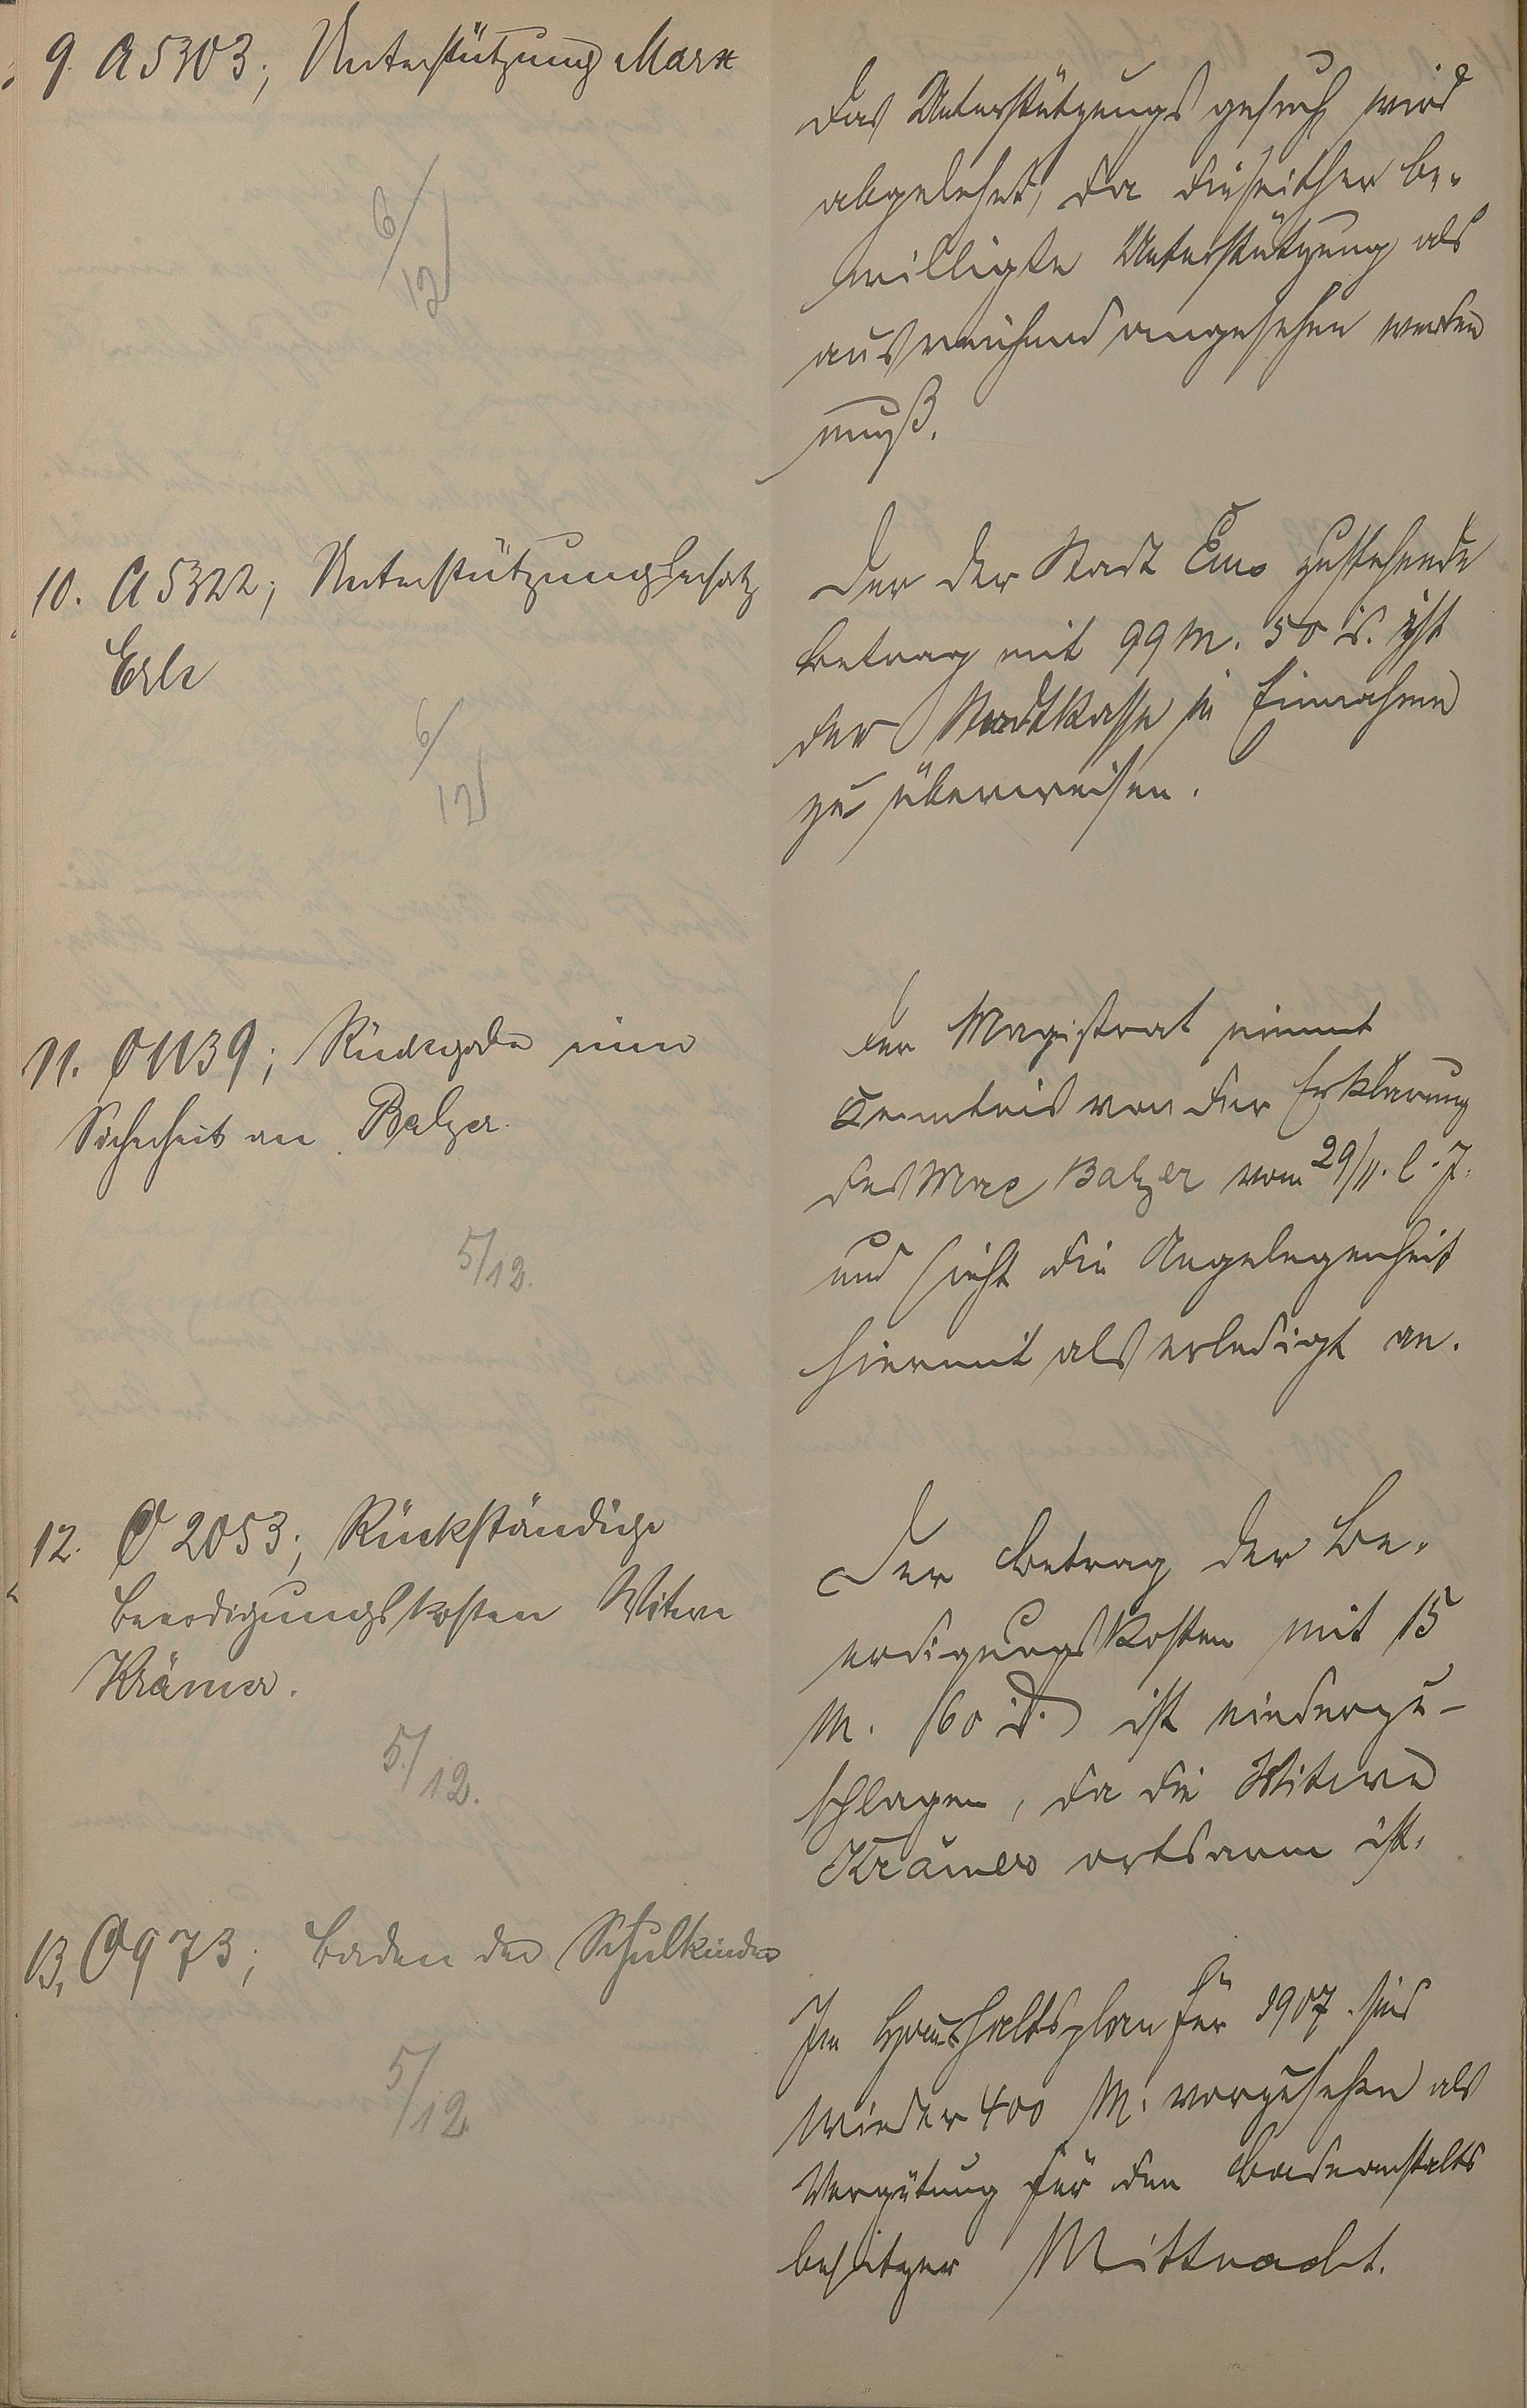 9. A 5303; Unterstützung Marx
6/12
Das Unterstützungsgesuch wird
abgelehnt, da die seither be-
willigte Unterstützung als
ausreichend angesehen werden
muß.
10. A 5322; Unterstützungsersatz
Erle
6/12
Der der Stadt Ems zustehende
Betrag mit 99 M. 50 ₰. ist
der Stadtkasse in Einnahme
zu überweisen.
11. O 1139; Rückgabe einer
Sicherheit an Balzer.
5/12.
Der Magistrat nimmt
Kenntnis von der Erklärung
des Max Balzer vom 29/11. l. J.
und sieht die Angelegenheit
hiermit als erledigt an.
12. O 2053; Rückständige
Beerdigungskosten Witwe
Krämer.
5./12.
Der Betrag der Be-
erdigungskosten mit 15
M. 60 ₰. ist niederzu-
schlagen, da die Witwe
Krämer ortsarm ist.
13. O 973; Baden der Schulkinder
5/12.
Im Haushaltsplan für 1907 sind
wieder 400 M. vorzusehen als
Vergütung für den Badeanstalts
besitzer Mittnacht.